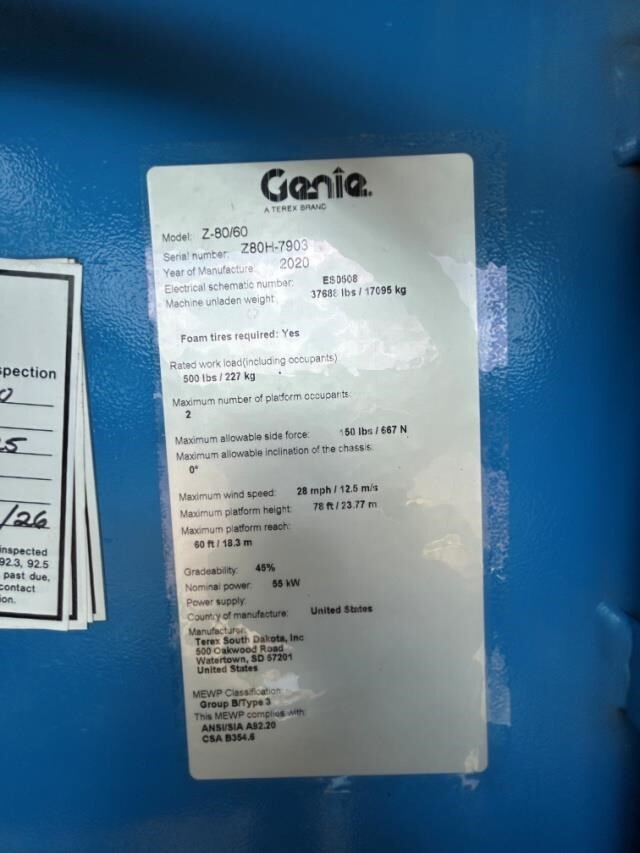 Genie.
A TEREX BRAND
Model: Z-80/60
Serial number: Z80H-7903
Year of Manufacture: 2020
Electrical schematic number: ES0508
Machine unladen weight 37688 lbs / 17095 kg
Foam tires required: Yes
Rated work load(including occupants)
500 lbs / 227 kg
Maximum number of platform occupants:
2
Maximum allowable side force: 150 lbs / 667 N
Maximum allowable inclination of the chassis:
0°
Maximum wind speed: 28 mph / 12.5 m/s
Maximum platform height: 78 ft / 23.77 m
Maximum platform reach:
60 ft / 18.3 m
Gradeability: 45%
Nominal power: 55 kW
Power supply:
Country of manufacture: United States
Manufacturer:
Terex South Dakota, Inc
500 Oakwood Road
Watertown, SD 57201
United States
MEWP Classification:
Group B/Type 3
This MEWP complies with:
ANSI/SIA A92.20
CSA B354.6
spection
/26
inspected
92.3, 92.5
past due,
contact
ion.